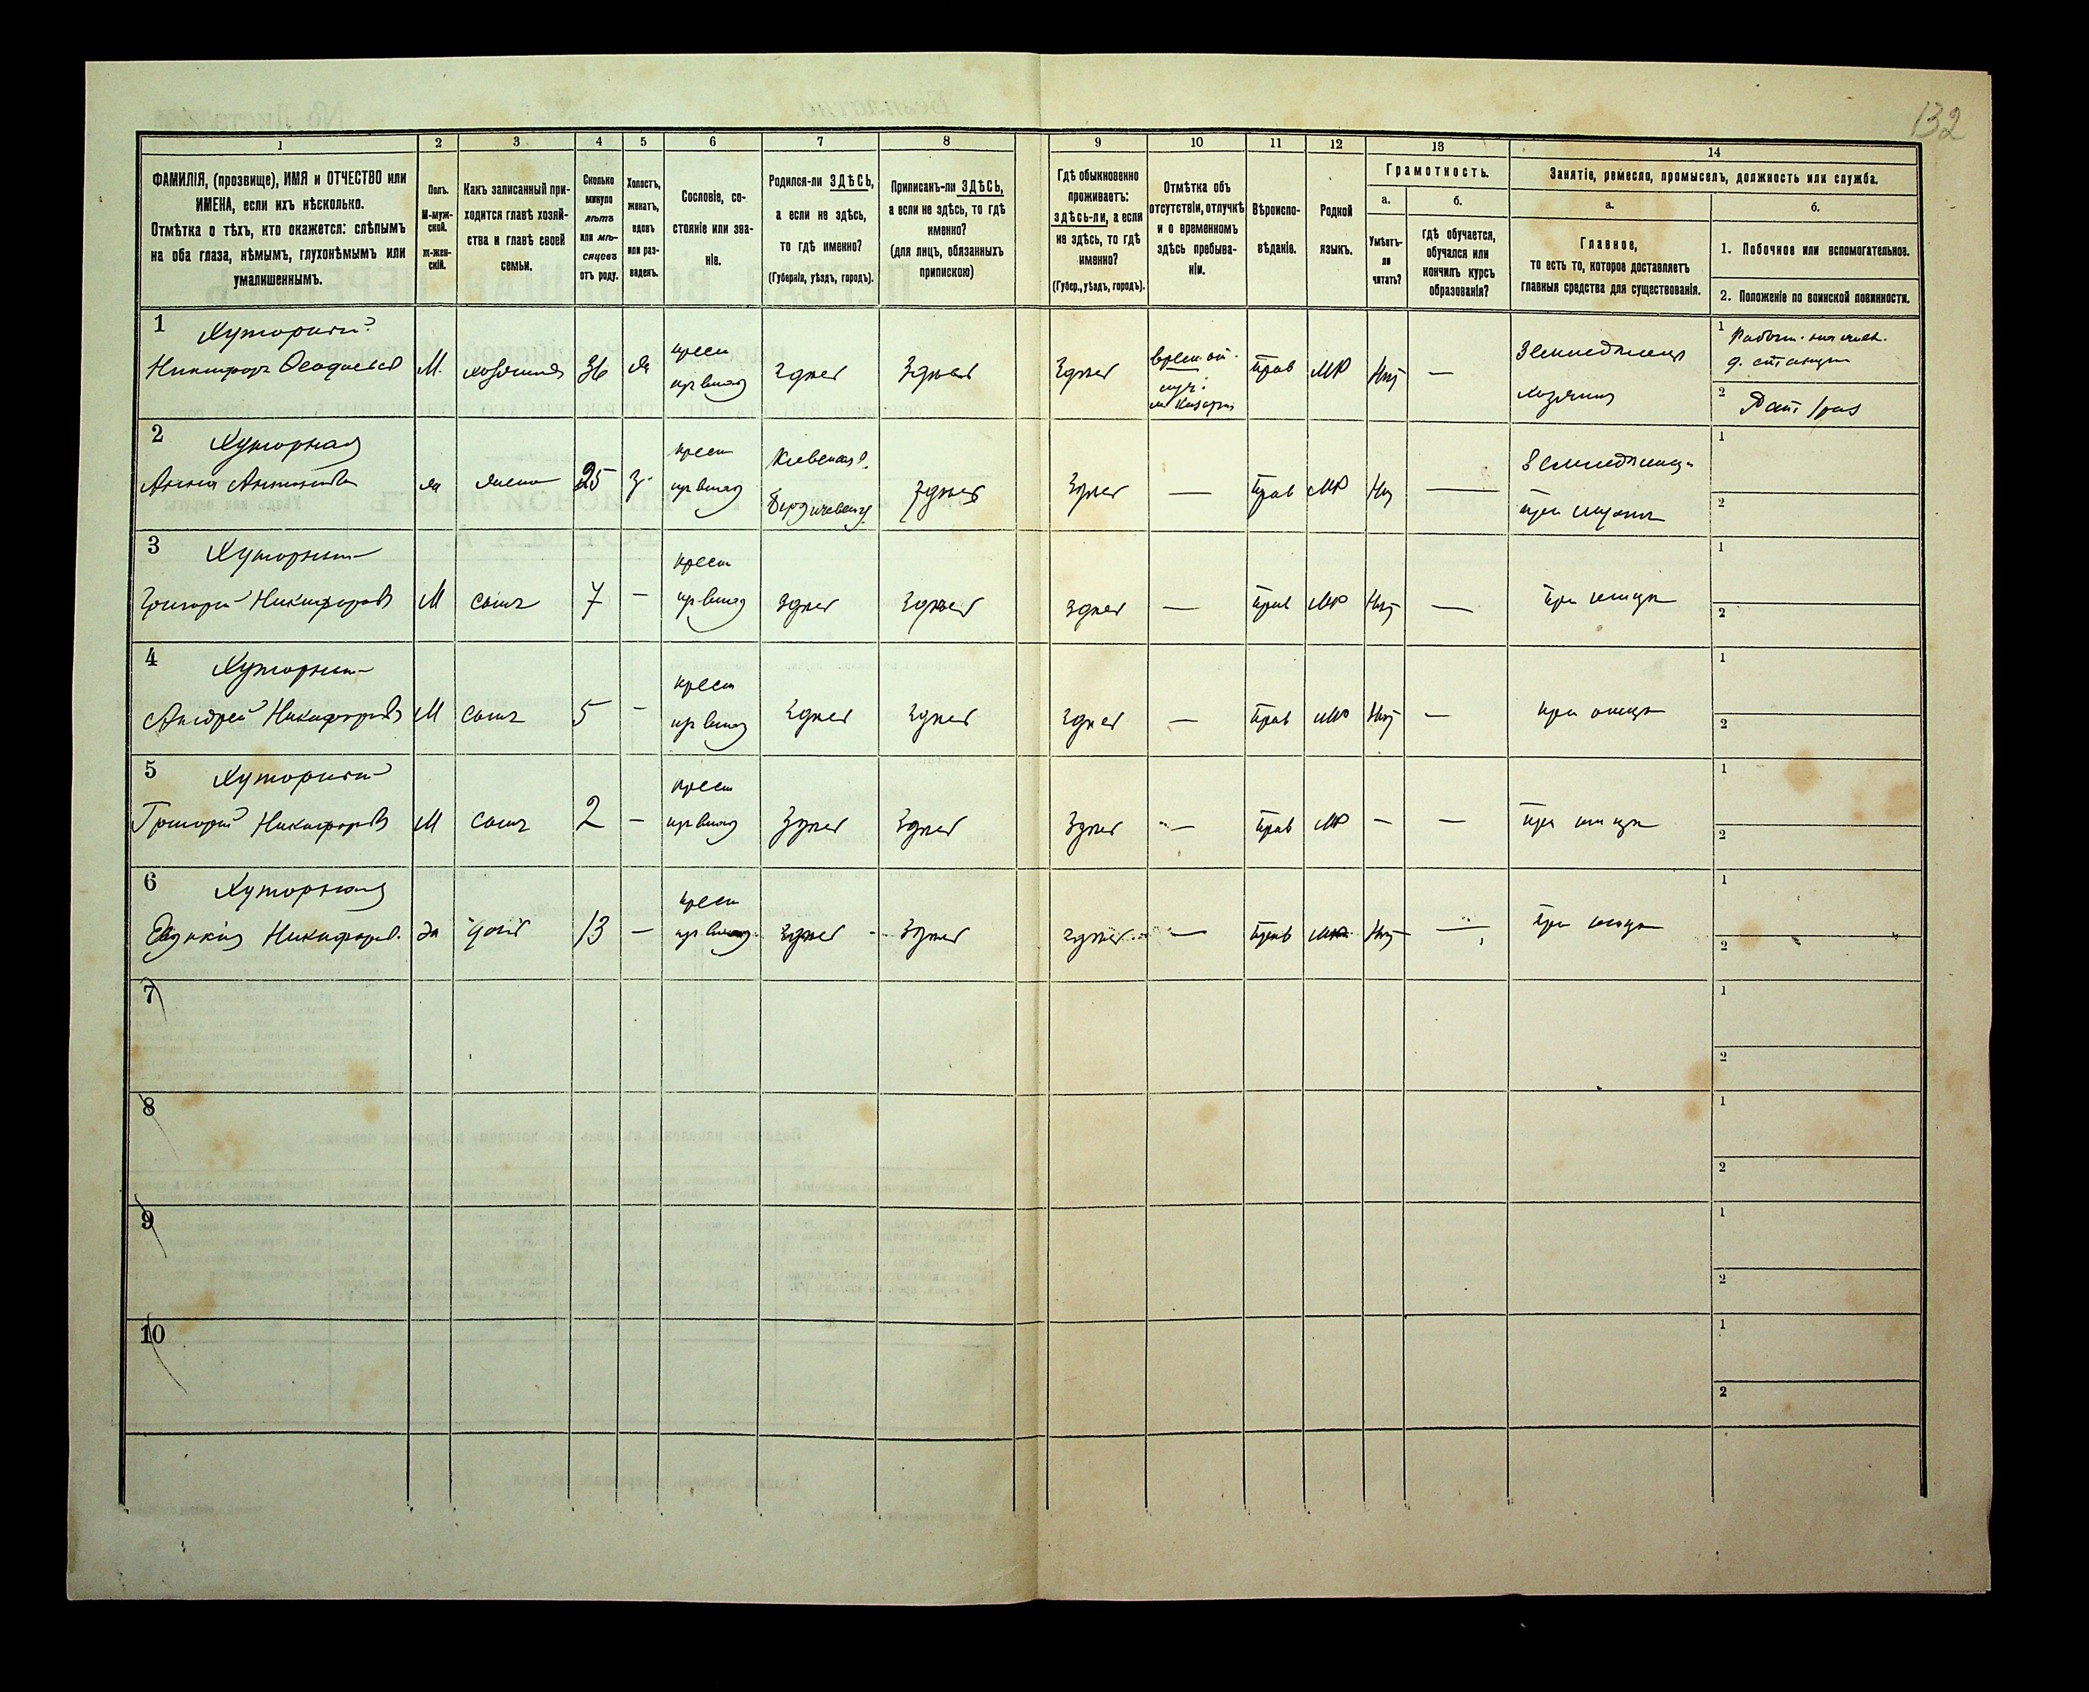 132
1
2
3
4
5
6
7
8
9
10
11
12
13
14
ФАМИЛІЯ, (прозвище), ИМЯ и ОТЧЕСТВО или
ИМЕНА, если ихъ нѣсколько.
Отмѣтка о тѣхъ, кто окажется: слѣпымъ
на оба глаза, нѣмымъ, глухонѣмымъ или
умалишеннымъ.
Полъ.
М-муж-
ской.
ж-жен-
скій.
Какъ записанный при-
ходится главѣ хозяй-
ства и главѣ своей
семьи.
Сколько
минуло
лѣтъ
или мѣ-
сяцевъ
отъ роду.
Холостъ,
женатъ,
вдовъ
или раз-
веденъ.
Сословіе, со-
стояніе или зва-
ніе.
Родился-ли ЗДѢСЬ,
а если не здѣсь,
то гдѣ именно?
(Губернія, уѣздъ, городъ).
Приписанъ-ли ЗДѢСЬ,
а если не здѣсь, то гдѣ
именно?
(для лицъ, обязанныхъ
припискою)
Гдѣ обыкновенно
проживаетъ:
здѣсь-ли, а если
не здѣсь, то гдѣ
именно?
(Губер., уѣздъ, городъ).
Отмѣтка объ
отсутствіи, отлучкѣ
и о временномъ
здѣсь пребыва-
ніи.
Вѣроиспо-
вѣданіе.
Родной
языкъ.
Грамотность.
а.
Умѣетъ-
ли
читать?
б.
гдѣ обучается,
обучался или
кончилъ курсъ
образованія?
Занятіе, ремесло, промыселъ, должность или служба.
а.
Главное,
то есть то, которое доставляетъ
главныя средства для существованія.
б.
1. Побочное или вспомогательное.
2. Положеніе по воинской повинности.
1 Хуторный
Никифоръ М. хозяинъ 36 ж крест здѣсь Здѣсь Здѣсь Прав МР Нѣт — Земледѣлецъ
хозяинъ
1
2
2 Хуторная
Анна Антонова ж жена 25 з. крест Кіевская г.
Бердичевск у. здѣсь Здѣсь — Прав МР Нѣт — Земледѣлецъ
при мужѣ
1
2
3 Хуторный
Григорій Никифоровъ М сынъ 7 — крест здѣсь Здѣсь здѣсь — Прав МР Нѣт — При отцѣ
1
2
4 Хуторный
Андрей Никифоровъ М сынъ 5 — крест Здѣсь Здѣсь здѣсь — Прав МР Нѣт — при отцѣ
1
2
5 Хуторный
Григорій Никифоровъ М сынъ 2 — крест Здѣсь Здѣсь Здѣсь — Прав МР — — При отцѣ
1
2
6 Хуторная
Евдокія Никифоров. ж дочь 13 — крест здѣсь Здѣсь здѣсь — Прав МР Нѣт — При отцѣ
1
2
7
1
2
8
1
2
9
1
2
10
1
2